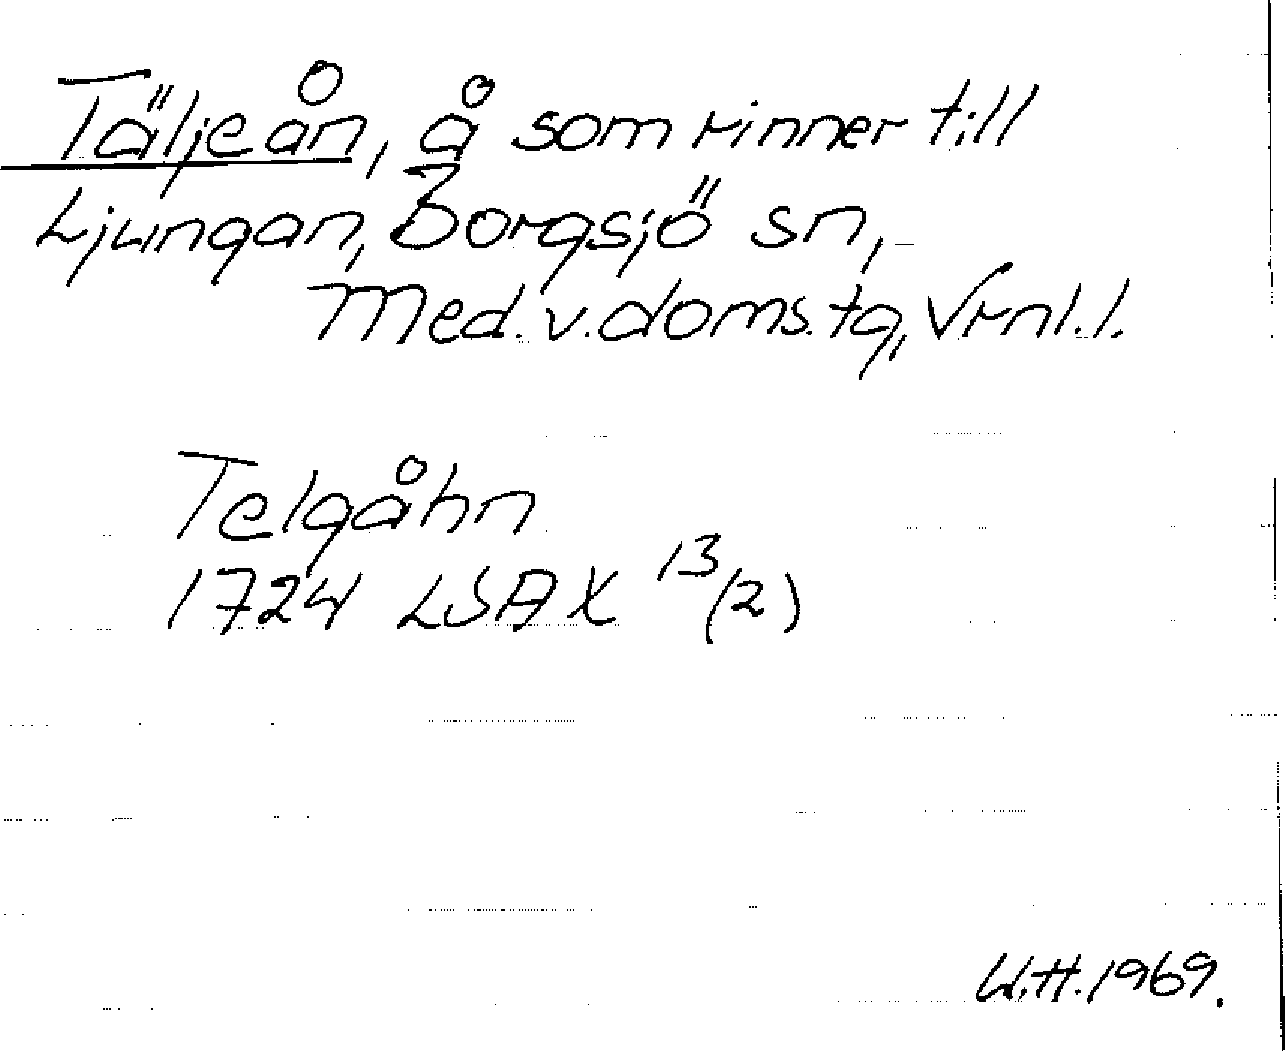 Täljeån, å som rinner till
Ljungan, Borgsjö sn,
Med. v. doms. tg, Vrnl. l.
Telgåhn
1724 LSA X 13/(2)
W.H. 1969.